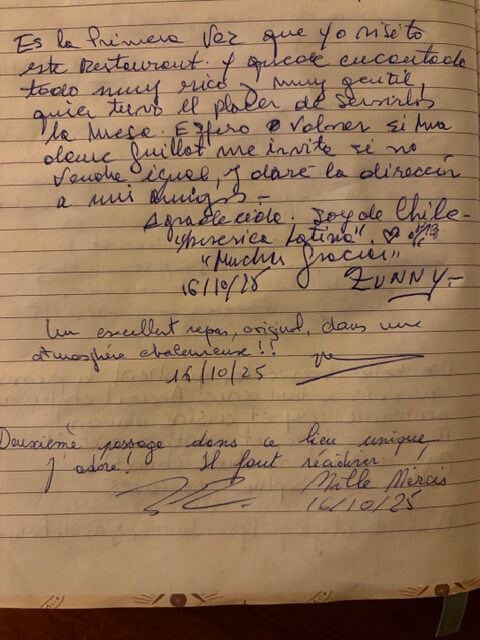 Es la Primera Vez que yo visito
este Restaurant. y quede encantada
todo muy rico y muy gentil,
quien tuvo el placer de servirlos
la mesa. Espero volver si Ma
dame Guillot me invite si no
vendre igual, y daré la dirección
a mis amigos -
Agradecida. Soy de Chile -
"America Latina". ♡
"Muchas Gracias"
16/10/25 ZUNNY -
Un excellent repas, original, dans une
atmosphère chaleureuse !!
16/10/25
Deuxième passage dans ce lieu unique,
J'adore! Il faut récidiver
Mille Mercis
16/10/25